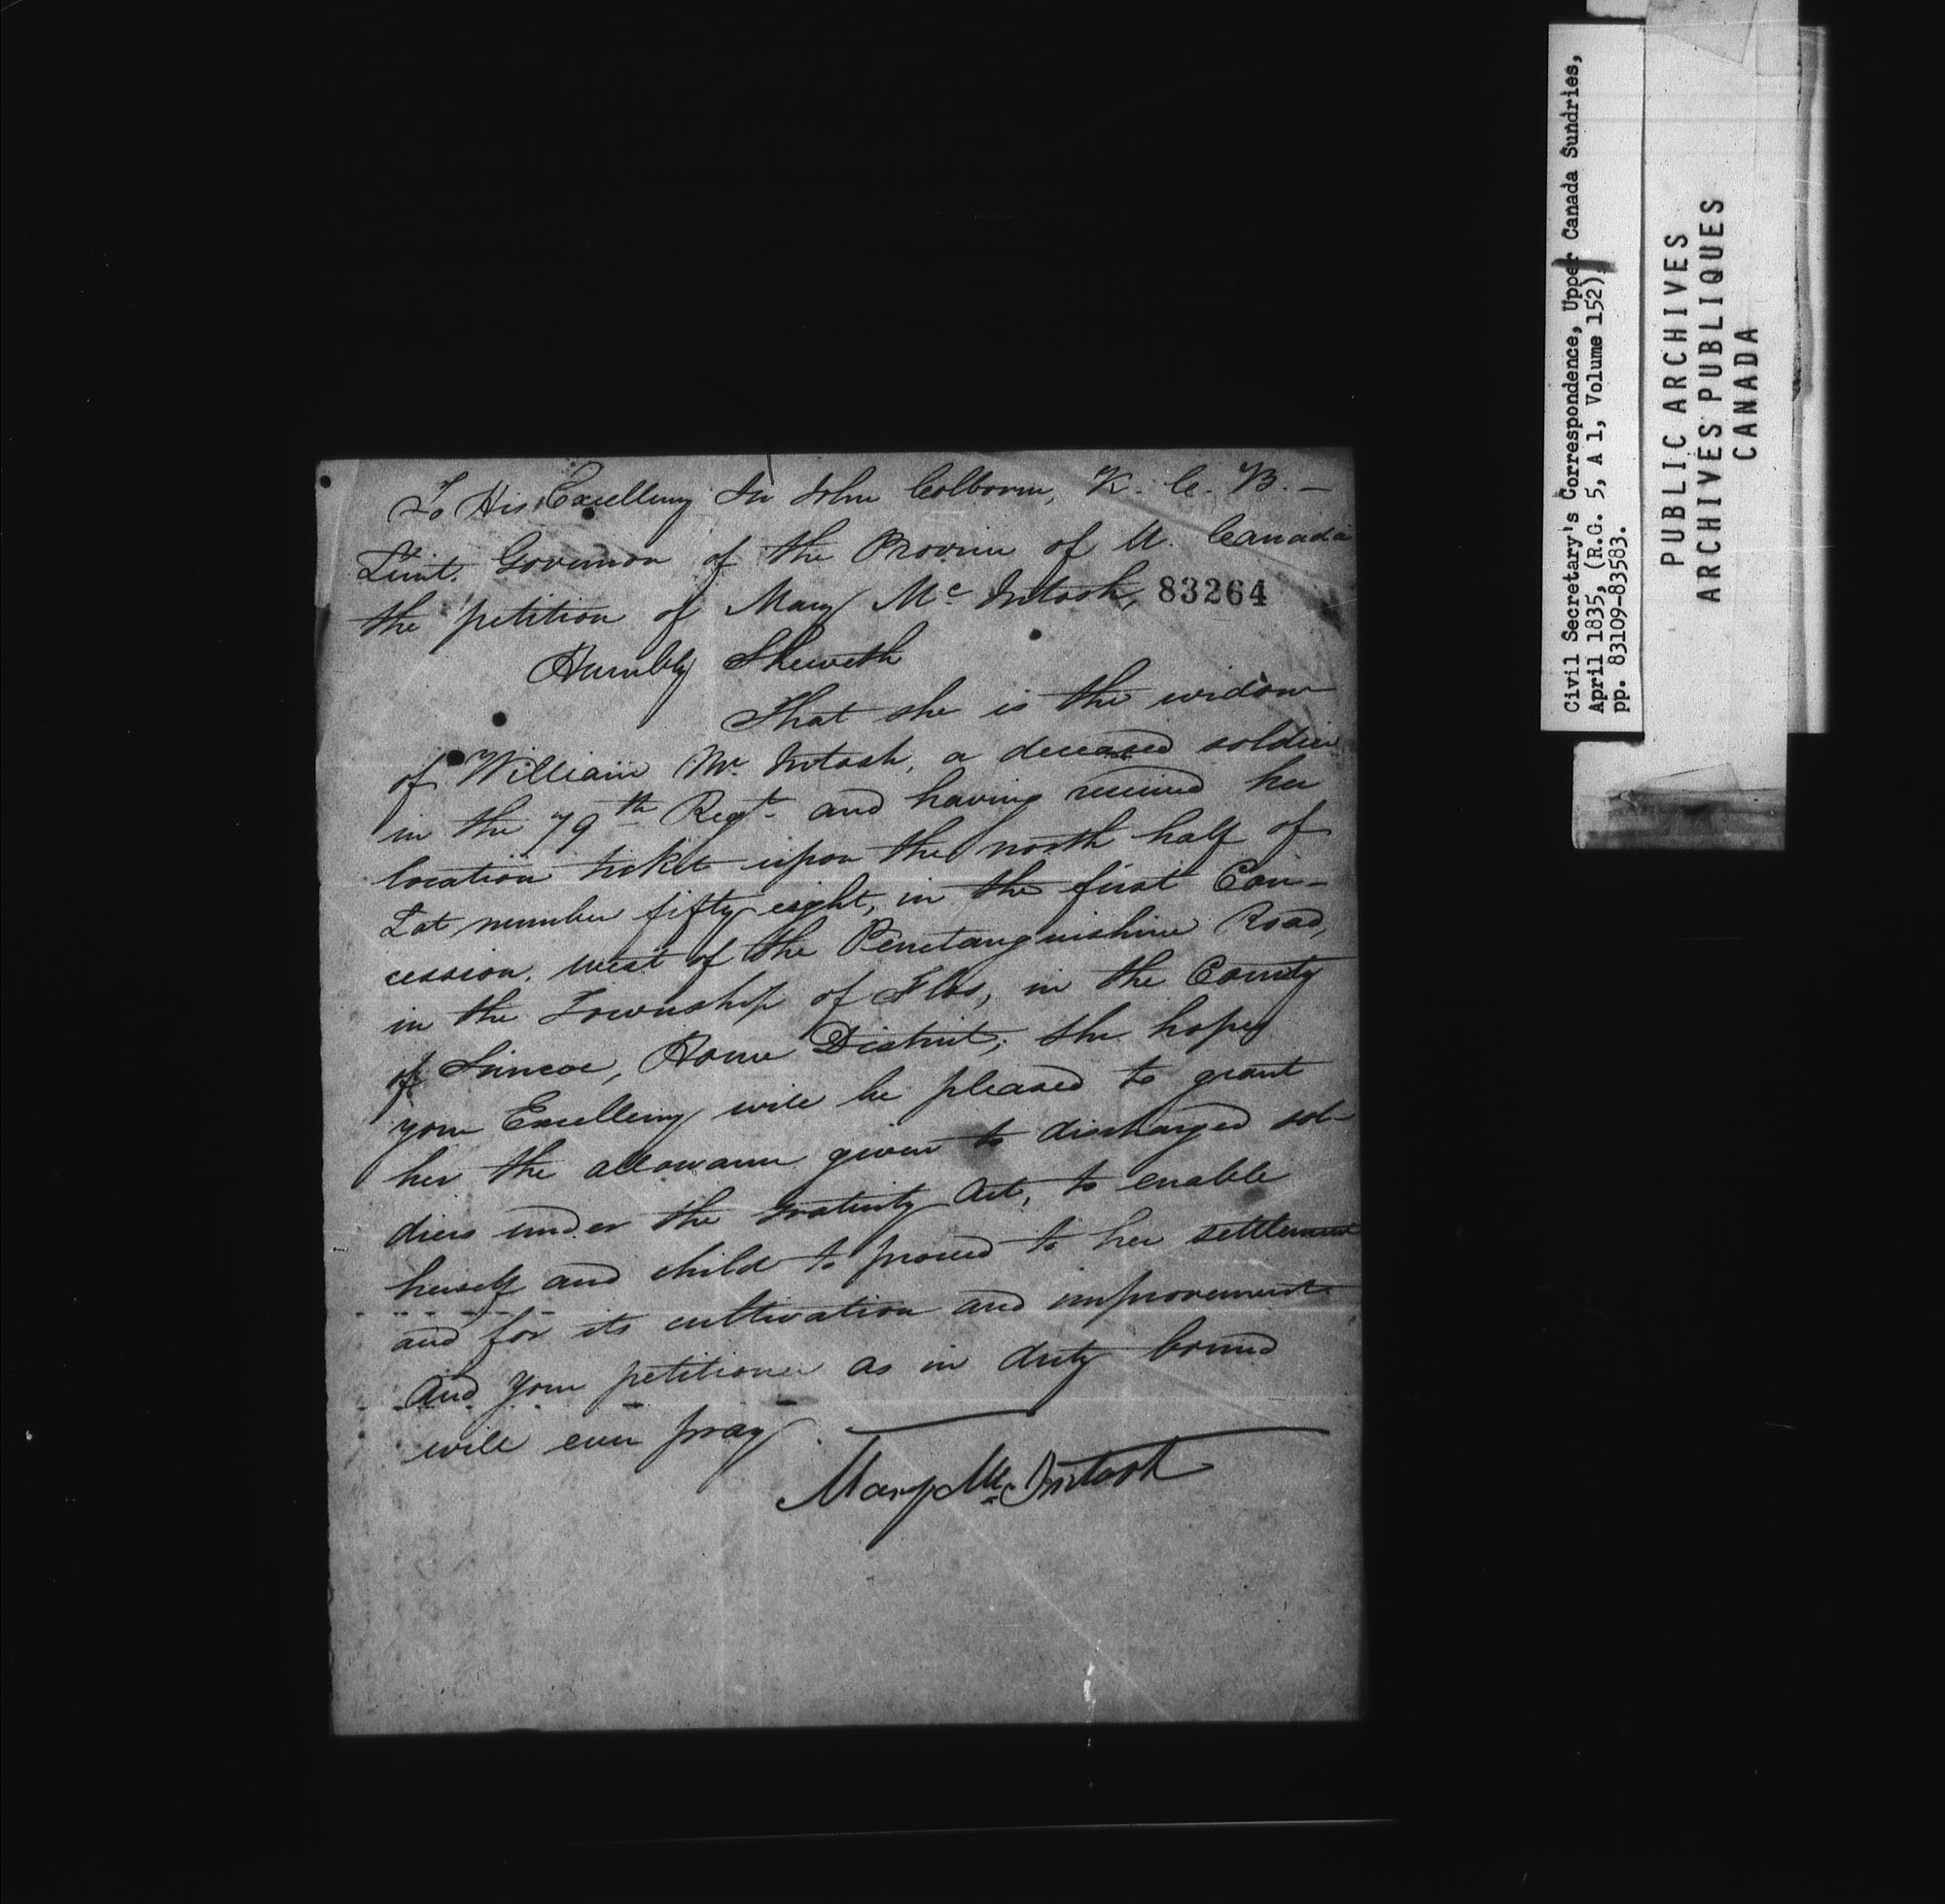 To His Excellency Sir John Colborne, K. C. B. —
Lieut. Governor of the Province of U. Canada
the petition of Mary Mc Intosh,
83264
Humbly Sheweth
That she is the widow
of William Mc Intosh, a deceased soldier
in the 79th Regt. and having received her
location ticket upon the north half of
Lot number fifty eight, in the first Con-
cession, west of the Penetanguishine Road,
in the Township of Flos, in the County
of Simcoe, Home District; she hopes
your Excellency will be pleased to grant
her the allowance given to discharged sol-
diers under the Gratuity Act, to enable
herself and child to proceed to her settlement
and for its cultivation and improvement.
And your petitioner as in duty bound
will ever pray.
Mary Mc Intosh
Civil Secretary's Correspondence, Upper Canada Sundries,
April 1835, (R.G. 5, A 1, Volume 152),
pp. 83109-83583.
PUBLIC ARCHIVES
ARCHIVES PUBLIQUES
CANADA